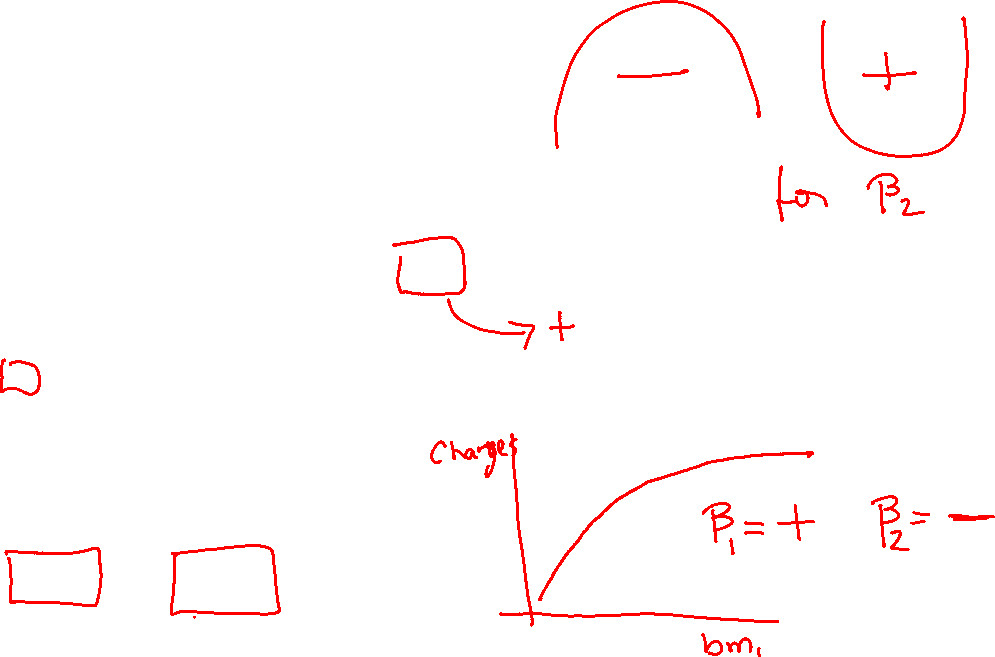 − +
for β₂
+
Charges
β₁ = + β₂ = −
bmi